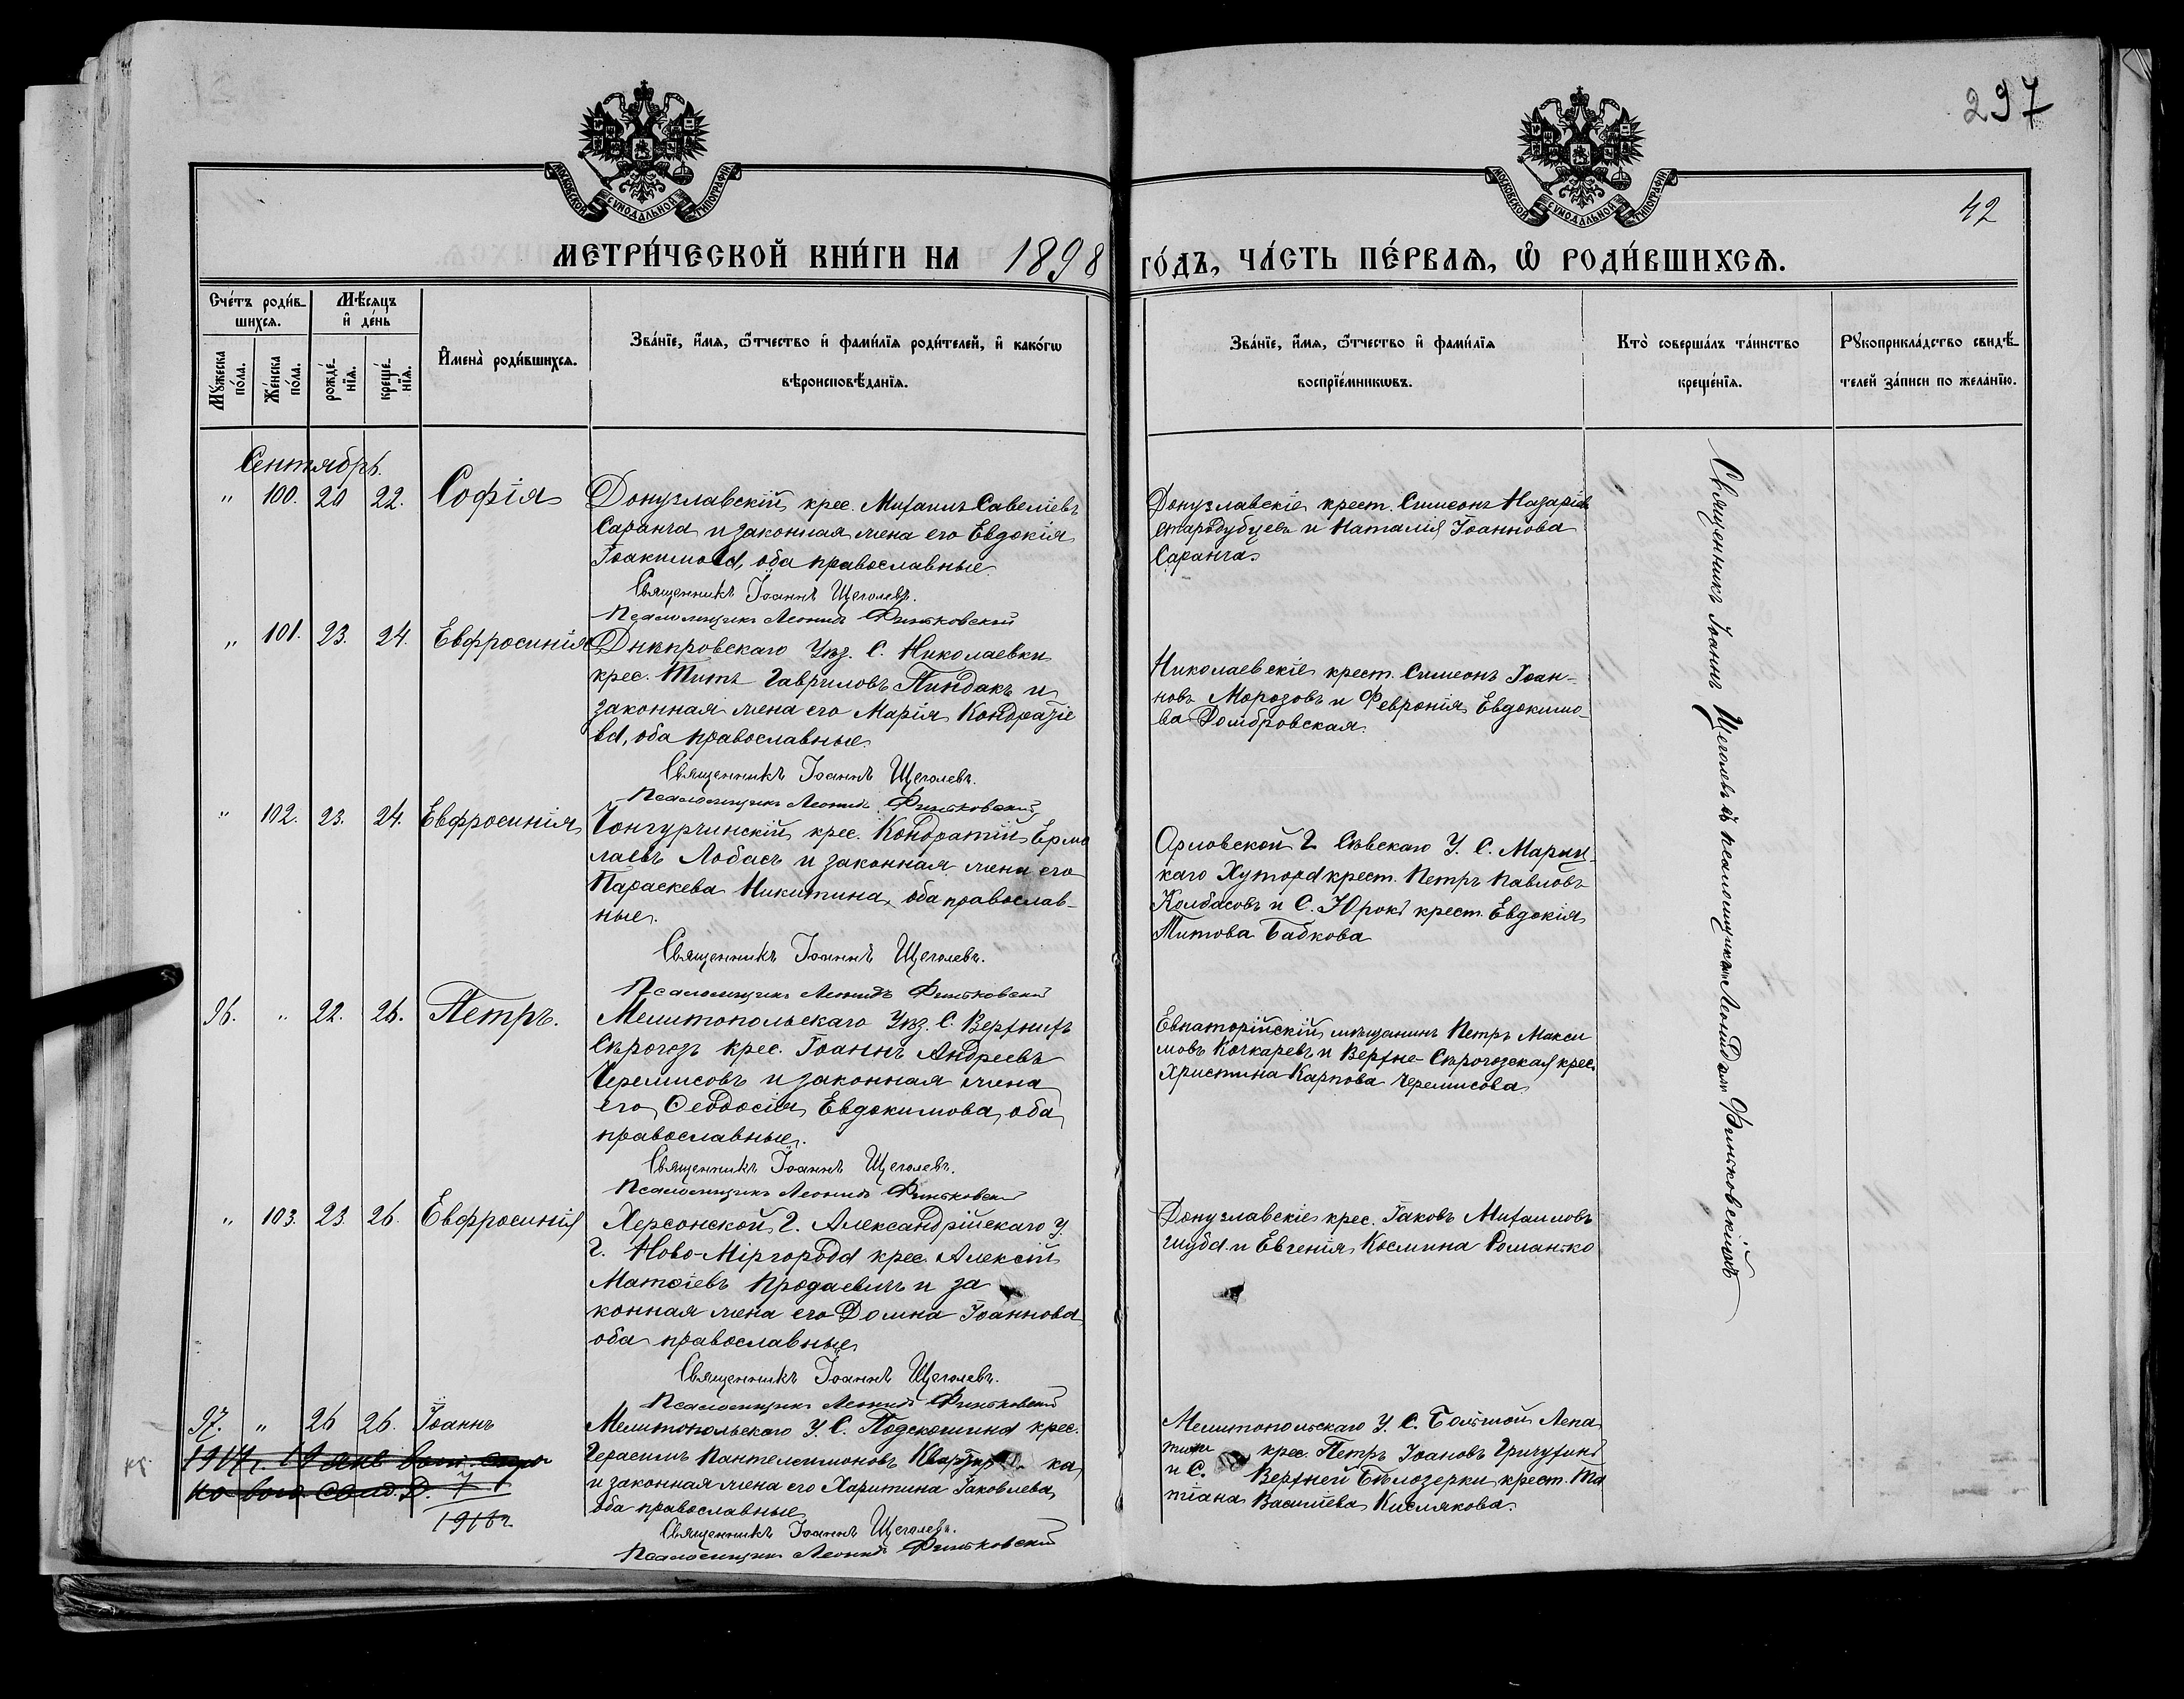 297
42
МОСКОВСКОЙ СѴНОДАЛЬНОЙ ТИПОГРАФІИ
МОСКОВСКОЙ СѴНОДАЛЬНОЙ ТИПОГРАФІИ
МЕТРИ́ЧЕСКОЙ КНИ́ГИ НА 1898
ГО́ДЪ, ЧА́СТЬ ПЕ́РВАѦ, Ѡ҆ РОДИ́ВШИХСѦ.
Сче́тъ роди́в-
шихсѧ.
Мꙋ́жеска по́ла.
Же́нска по́ла.
Мѣ́сяцъ
и҆ де́нь
рожде́-
нїѧ.
креще́-
нїѧ.
И҆мена̀ роди́вшихсѧ.
Зва́нїе, и҆́мѧ, ѻ҆́тчество и҆ фами́лїѧ роди́телей, и҆ како́гѡ
вѣроисповѣ́данїѧ.
Зва́нїе, и҆́мѧ, ѻ҆́тчество и҆ фами́лїѧ
воспрїе́мникѡвъ.
Кто̀ соверша́лъ та́инство
креще́нїѧ.
Рꙋкоприкла́дство свидѣ́-
телей за́писи по жела́нїю.
Сентябрь.
" 100. 20 22. Софія
Донузлавскій крес. Михаилъ Савеліевъ
Саранча и законная жена его Евдокія
Іоакимова, оба православные.
Священникъ Іоаннъ Щеголевъ.
Псаломщикъ Леонидъ Финьковский
Донузлавскіе крест. Симеонъ Назаріев
Стародубцевъ и Наталія Іоаннова
Саранча.
" 101. 23. 24. Евфросинія
Днѣпровскаго Уѣз. С. Николаевки
крес. Титъ Гавриловъ Пиндакъ и
законная жена его Марія Кондратіе
ва, оба православные.
Священникъ Іоаннъ Щеголевъ.
Псаломщикъ Леонидъ Финьковский
Николаевскіе крест. Симеонъ Іоан-
новъ Морозовъ и Февронія Евдокимо-
ва Домбровская.
" 102. 23. 24. Евфросинія
Чонгурчинскій крес. Кондратій Ермо
лаевъ Лобасъ и законная жена его
Параскева Никитина, оба православ-
ные.
Священникъ Іоаннъ Щеголевъ.
Псаломщикъ Леонидъ Финьковский
Орловской Г. Сѣвскаго У. С. Марин-
каго Хутора крест. Петръ Павловъ
Колбасовъ и С. Юрокъ крест. Евдокія
Титова Бабкова
96. " 22. 26. Петръ.
Мелитопольскаго Уѣз. С. Верхнихъ
Сѣрогозъ крес. Іоаннъ Андреевъ
Черемисовъ и законная жена
его Ѳеодосія Евдокимова, оба
православные.
Священникъ Іоаннъ Щеголевъ.
Псаломщикъ Леонидъ Финьковский
Евпаторійскій мѣщанинъ Петръ Макси
мовъ Кочкаревъ и Верхне-Сѣрогозская крес.
Христина Карпова Черемисова
" 103. 23. 26. Евфросинія
Херсонской Г. Александрійскаго У.
Г. Ново-Міргорода крес. Алексій
Матѳіевъ Продаевичъ и за
конная жена его Домна Іоаннова
оба православные
Священникъ Іоаннъ Щеголевъ.
Псаломщикъ Леонидъ Финьковский
Донузлавскіе крес. Іаковъ Михаиловъ
Шуба и Евгенія Космина Романько
97. " 26 26. Іоаннъ
1917г. 19 янв. воин.
1916г.
Мелитопольскаго У. С. крес.
Герасимъ Пантелеимоновъ ка
и законная жена его Харитина Іаковлева,
оба православные
Священникъ Іоаннъ Щеголевъ.
Псаломщикъ Леонидъ Финьковский
Мелитопольскаго У. С. Большой Лепа
тихи крес. Петръ Іоановъ
и С. Верхней Бѣлозерки крест. Та
тіана Василіева Кислякова.
Священникъ Іоаннъ Щеголевъ съ псаломщикомъ Леонидомъ Финьковскимъ